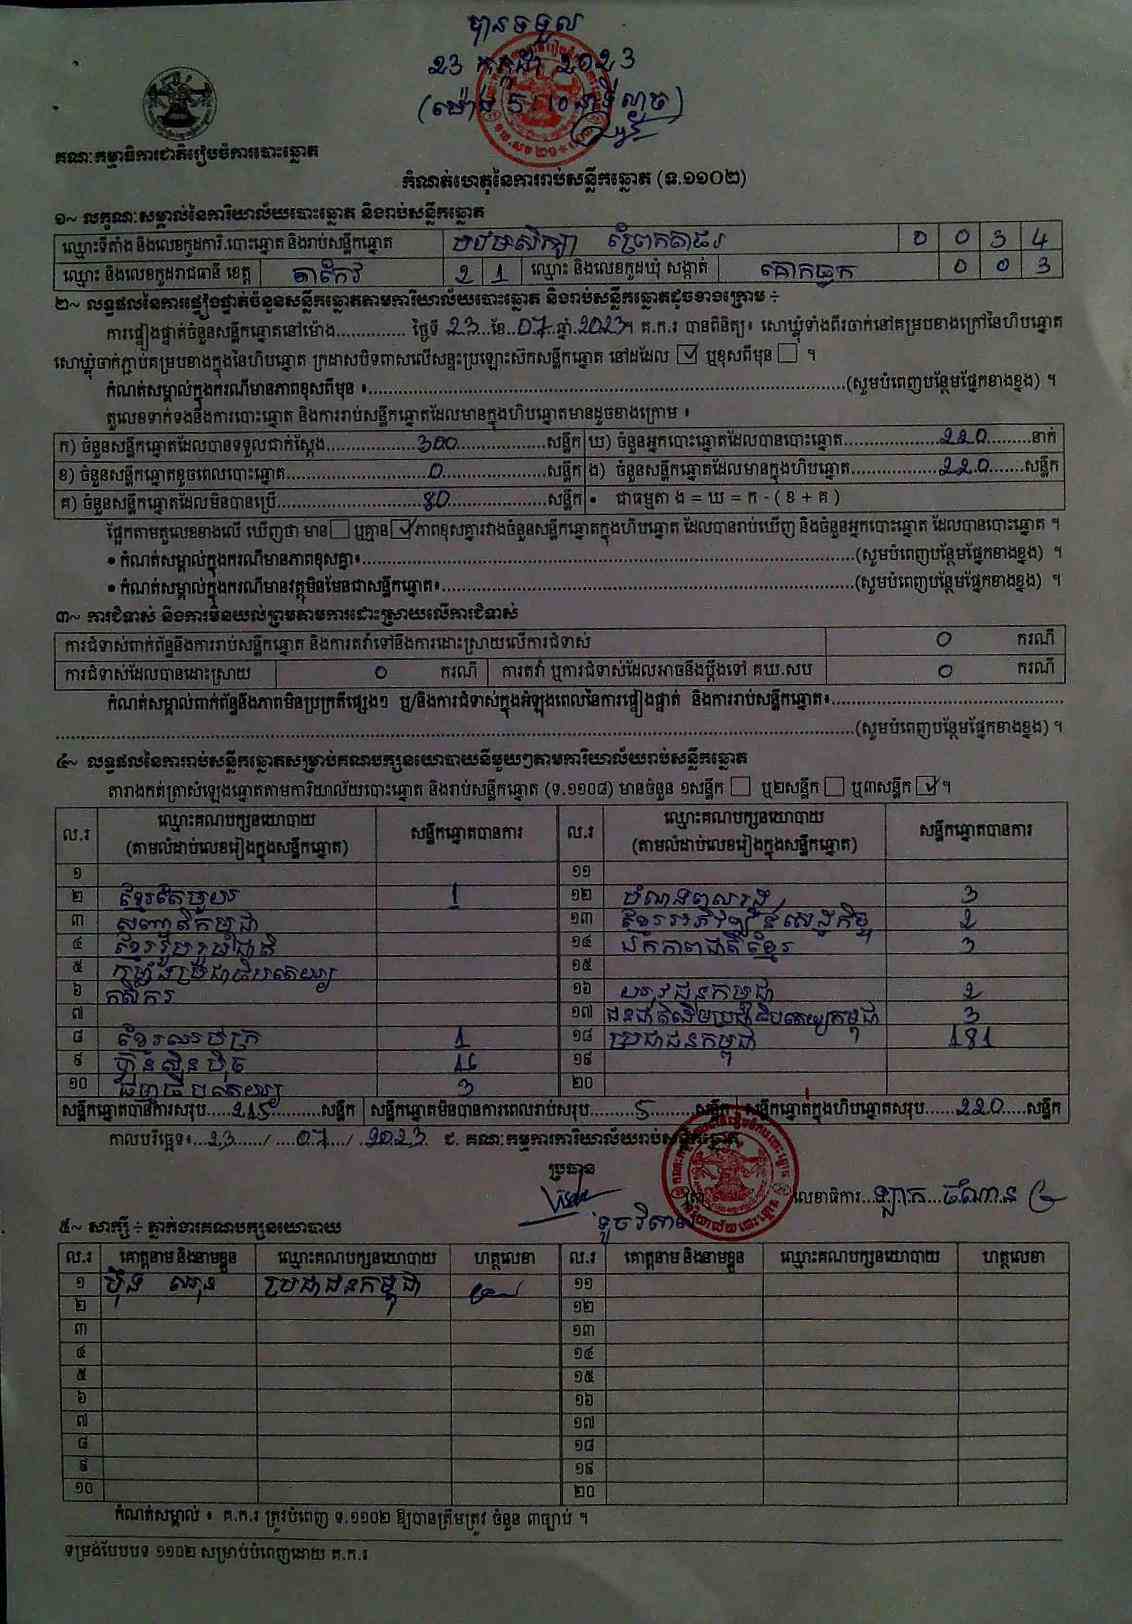 បានទទួល
23 កក្កដា 2023
(ម៉ោង 5:10 នាទីល្ងាច)
គណៈកម្មាធិការជាតិរៀបចំការបោះឆ្នោត
កំណត់ហេតុនៃការរាប់សន្លឹកឆ្នោត (ទ.១១០២)
១~ លក្ខណៈសម្គាល់នៃការិយាល័យបោះឆ្នោត និងរាប់សន្លឹកឆ្នោត
ឈ្មោះទីតាំង និងលេខកូដការិ.បោះឆ្នោត និងរាប់សន្លឹកឆ្នោត បឋមសិក្សា ព្រែកតាផរ 0 0 3 4
ឈ្មោះ និងលេខកូដរាជធានី ខេត្ត តាកែវ 2 1 ឈ្មោះ និងលេខកូដឃុំ សង្កាត់ គោកធ្លក 0 0 3
២~ លទ្ធផលនៃការផ្ទៀងផ្ទាត់ចំនួនសន្លឹកឆ្នោតតាមការិយាល័យបោះឆ្នោត និងរាប់សន្លឹកឆ្នោតដូចខាងក្រោម ÷
ការផ្ទៀងផ្ទាត់ចំនួនសន្លឹកឆ្នោតនៅម៉ោង.............. ថ្ងៃទី 23 ...ខែ..07..ឆ្នាំ.2023។ គ.ក.រ បានពិនិត្យ៖ សោឃ្លុំទាំងពីរចាក់នៅគម្របខាងក្រៅនៃហិបឆ្នោត
សោឃ្លុំចាក់ភ្ជាប់គម្របខាងក្នុងនៃហិបឆ្នោត ក្រដាសបិទពាសលើសន្ទះប្រឡោះស៊កសន្លឹកឆ្នោត នៅដដែល ☑ ឬខុសពីមុន ☐ ។
កំណត់សម្គាល់ក្នុងករណីមានភាពខុសពីមុន ៖..............(សូមបំពេញបន្ថែមផ្នែកខាងខ្នង) ។
តួលេខទាក់ទងនឹងការបោះឆ្នោត និងការរាប់សន្លឹកឆ្នោតដែលមានក្នុងហិបឆ្នោតមានដូចខាងក្រោម ៖
ក) ចំនួនសន្លឹកឆ្នោតដែលបានទទួលជាក់ស្តែង........300........សន្លឹក ឃ) ចំនួនអ្នកបោះឆ្នោតដែលបានបោះឆ្នោត........220........នាក់
ខ) ចំនួនសន្លឹកឆ្នោតខូចពេលបោះឆ្នោត........0........សន្លឹក ង) ចំនួនសន្លឹកឆ្នោតដែលមានក្នុងហិបឆ្នោត........220........សន្លឹក
គ) ចំនួនសន្លឹកឆ្នោតដែលមិនបានប្រើ........80........សន្លឹក • ជាធម្មតា ង = ឃ = ក - ( ខ + គ )
ផ្អែកតាមតួលេខខាងលើ ឃើញថា មាន ☐ ឬគ្មាន ☑ ភាពខុសគ្នារវាងចំនួនសន្លឹកឆ្នោតក្នុងហិបឆ្នោត ដែលបានរាប់ឃើញ និងចំនួនអ្នកបោះឆ្នោត ដែលបានបោះឆ្នោត ។
• កំណត់សម្គាល់ក្នុងករណីមានភាពខុសគ្នា៖..............(សូមបំពេញបន្ថែមផ្នែកខាងខ្នង) ។
• កំណត់សម្គាល់ក្នុងករណីមានវត្ថុមិនមែនជាសន្លឹកឆ្នោត៖..............(សូមបំពេញបន្ថែមផ្នែកខាងខ្នង) ។
៣~ ការជំទាស់ និងការមិនយល់ព្រមតាមការដោះស្រាយលើការជំទាស់
ការជំទាស់ពាក់ព័ន្ធនឹងការរាប់សន្លឹកឆ្នោត និងការតវ៉ាទៅនឹងការដោះស្រាយលើការជំទាស់ 0 ករណី
ការជំទាស់ដែលបានដោះស្រាយ 0 ករណី ការតវ៉ា ឬការជំទាស់ដែលអាចនឹងប្តឹងទៅ គឃ.សប 0 ករណី
កំណត់សម្គាល់ពាក់ព័ន្ធនឹងភាពមិនប្រក្រតីផ្សេងៗ ឬ/និងការជំទាស់ក្នុងអំឡុងពេលនៃការផ្ទៀងផ្ទាត់ និងការរាប់សន្លឹកឆ្នោត៖..............
..............(សូមបំពេញបន្ថែមផ្នែកខាងខ្នង) ។
៤~ លទ្ធផលនៃការរាប់សន្លឹកឆ្នោតសម្រាប់គណបក្សនយោបាយនីមួយៗតាមការិយាល័យរាប់សន្លឹកឆ្នោត
តារាងកត់ត្រាសំឡេងឆ្នោតតាមការិយាល័យបោះឆ្នោត និងរាប់សន្លឹកឆ្នោត (ទ.១១០៨) មានចំនួន ១សន្លឹក ☐ ឬ២សន្លឹក ☐ ឬ៣សន្លឹក ☑ ។
ល.រ ឈ្មោះគណបក្សនយោបាយ (តាមលំដាប់លេខរៀងក្នុងសន្លឹកឆ្នោត) សន្លឹកឆ្នោតបានការ ល.រ ឈ្មោះគណបក្សនយោបាយ (តាមលំដាប់លេខរៀងក្នុងសន្លឹកឆ្នោត) សន្លឹកឆ្នោតបានការ
១ ១១
២ ខ្មែរតែមួយ 1 ១២ បំណងពលរដ្ឋ 3
៣ សញ្ជាតិកម្ពុជា ១៣ ខ្មែរអភិវឌ្ឍន៍សេដ្ឋកិច្ច 2
៤ ខ្មែររួបរួមជាតិ ១៤ ឯកភាពជាតិខ្មែរ 3
៥ កម្លាំងប្រជាធិបតេយ្យ ១៥
៦ កសិករ ១៦ យុវជនកម្ពុជា 2
៧ ១៧ ជនជាតិដើមប្រជាធិបតេយ្យកម្ពុជា 3
៨ ខ្មែរឈប់ក្រ 1 ១៨ ប្រជាជនកម្ពុជា 181
៩ ហ៊្វុនស៊ិនប៉ិច 16 ១៩
១០ ធម្មាធិបតេយ្យ 3 ២០
សន្លឹកឆ្នោតបានការសរុប.....215........សន្លឹក សន្លឹកឆ្នោតមិនបានការពេលរាប់សរុប........5........សន្លឹក សន្លឹកឆ្នោតក្នុងហិបឆ្នោតសរុប.......220....សន្លឹក
កាលបរិច្ឆេទ៖...23....../....07..../..2023. ជ. គណៈកម្មការការិយាល័យរាប់សន្លឹកឆ្នោត
ប្រធាន
លេខាធិការ...ឡាក ចំណាន
ទូច វិតារ
៥~ សាក្សី ÷ ភ្នាក់ងារគណបក្សនយោបាយ
ល.រ គោត្តនាម និងនាមខ្លួន ឈ្មោះគណបក្សនយោបាយ ហត្ថលេខា ល.រ គោត្តនាម និងនាមខ្លួន ឈ្មោះគណបក្សនយោបាយ ហត្ថលេខា
១ ម៉ឹង ឈុន ប្រជាជនកម្ពុជា ១១
២ ១២
៣ ១៣
៤ ១៤
៥ ១៥
៦ ១៦
៧ ១៧
៨ ១៨
៩ ១៩
១០ ២០
កំណត់សម្គាល់ ៖ គ.ក.រ ត្រូវបំពេញ ទ.១១០២ ឱ្យបានត្រឹមត្រូវ ចំនួន ៣ច្បាប់ ។
ទម្រង់បែបបទ ១១០២ សម្រាប់បំពេញដោយ គ.ក.រ